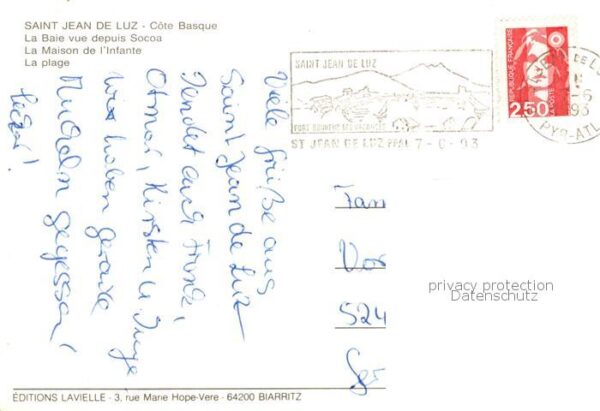 SAINT JEAN DE LUZ - Côte Basque
La Baie vue depuis Socoa
La Maison de l'Infante
La plage
SAINT JEAN DE LUZ
ST JEAN DE LUZ PPAL 7-6-93
RÉPUBLIQUE FRANÇAISE
2,50
LA POSTE
PYR-ATL
Viele Grüße aus
Saint Jean de Luz
sendet euch
Otmar, Kirsten u. Inge
Wir haben gerade
Muscheln gegessen!
lecker!
Fam
Vor
524
privacy protection
Datenschutz
ÉDITIONS LAVIELLE - 3, rue Marie Hope-Vere - 64200 BIARRITZ